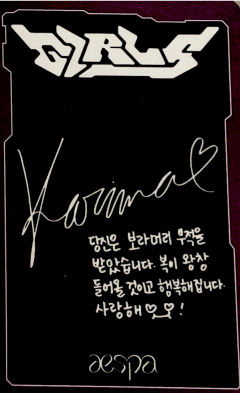 GIRLS
Karina♡
당신은 보라머리 부적을
받았습니다. 복이 왕창
들어올 것이고 행복해집니다.
사랑해♡♡!
aespa